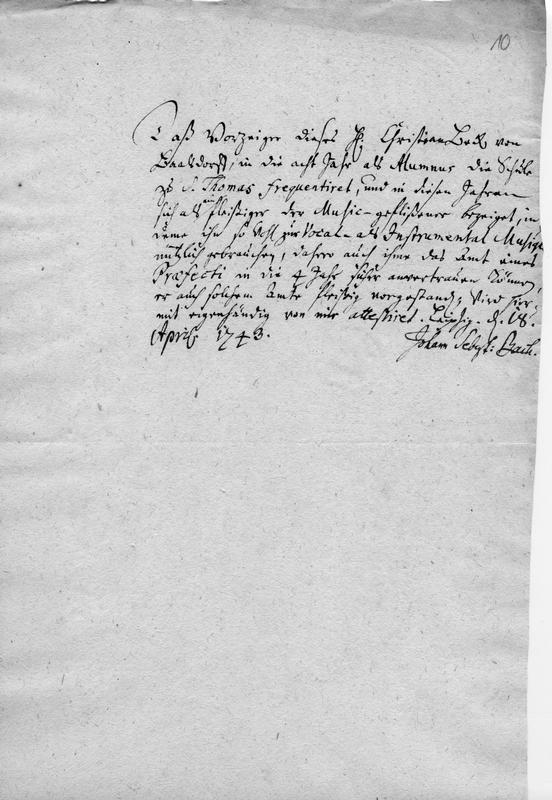 10
Daß Vorzeiger dieses H. Christian Beck von
Baalsdorff, in die acht Jahr als Alumnus die Schule
zu S. Thomas frequentiret, und in diesen Jahren
sich als ein fleißiger der Music-geflißener bezeiget, in
deme ihn so wohl zur Vocal- als Instrumental Musique
nützlich gebrauchen, dahero auch ihme das Amt eines
Præfecti in die 4 Jahr sicher anvertrauen können,
er auch solchem Amte fleißig vorgestanden, Wird hier-
mit eigenhändig von mir attestiret. Leipzig. d. 18.
April. 1743.
Joham Sebast: Bach.